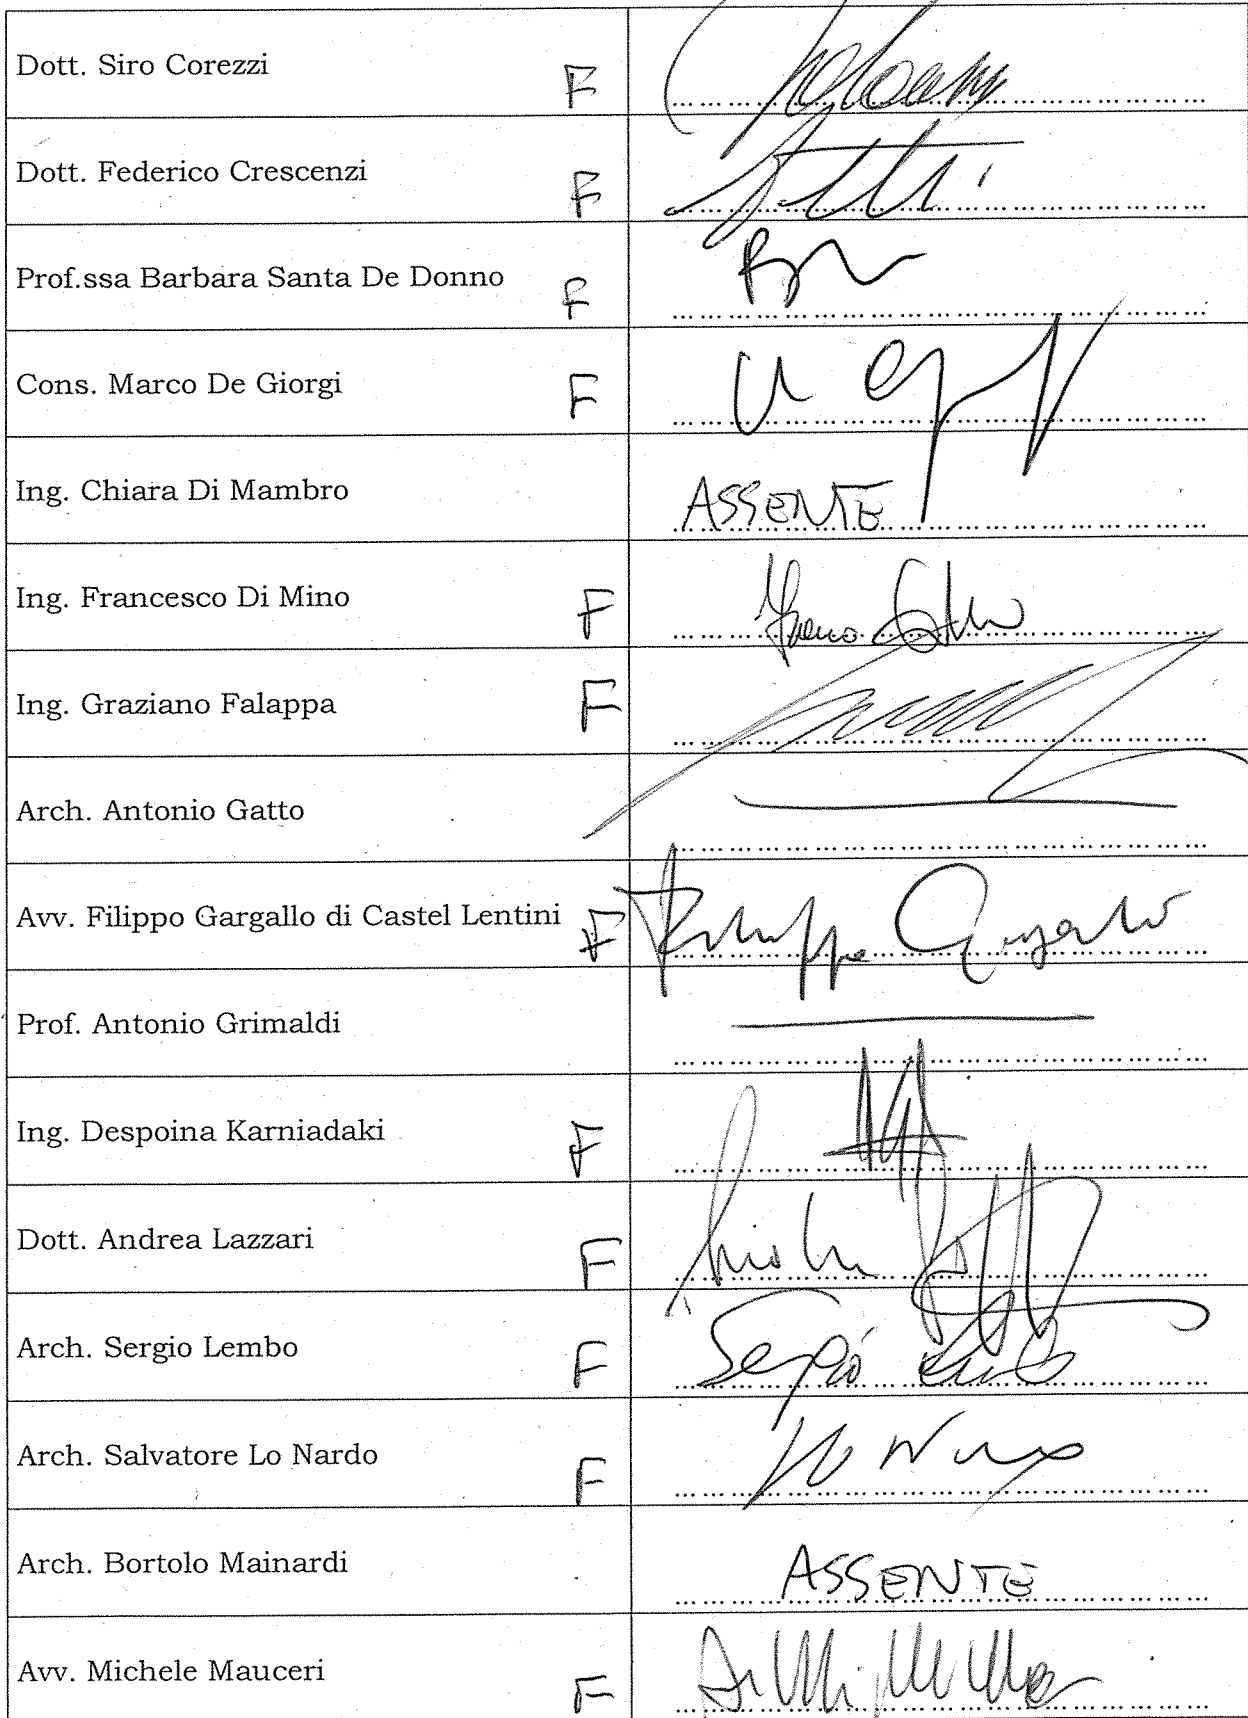 Dott. Siro Corezzi F
Dott. Federico Crescenzi F
Prof.ssa Barbara Santa De Donno F
Cons. Marco De Giorgi F
Ing. Chiara Di Mambro ASSENTE
Ing. Francesco Di Mino F
Ing. Graziano Falappa F
Arch. Antonio Gatto
Avv. Filippo Gargallo di Castel Lentini F Filippo Gargallo
Prof. Antonio Grimaldi
Ing. Despoina Karniadaki F
Dott. Andrea Lazzari F
Arch. Sergio Lembo F Sergio Lembo
Arch. Salvatore Lo Nardo F
Arch. Bortolo Mainardi ASSENTE
Avv. Michele Mauceri F